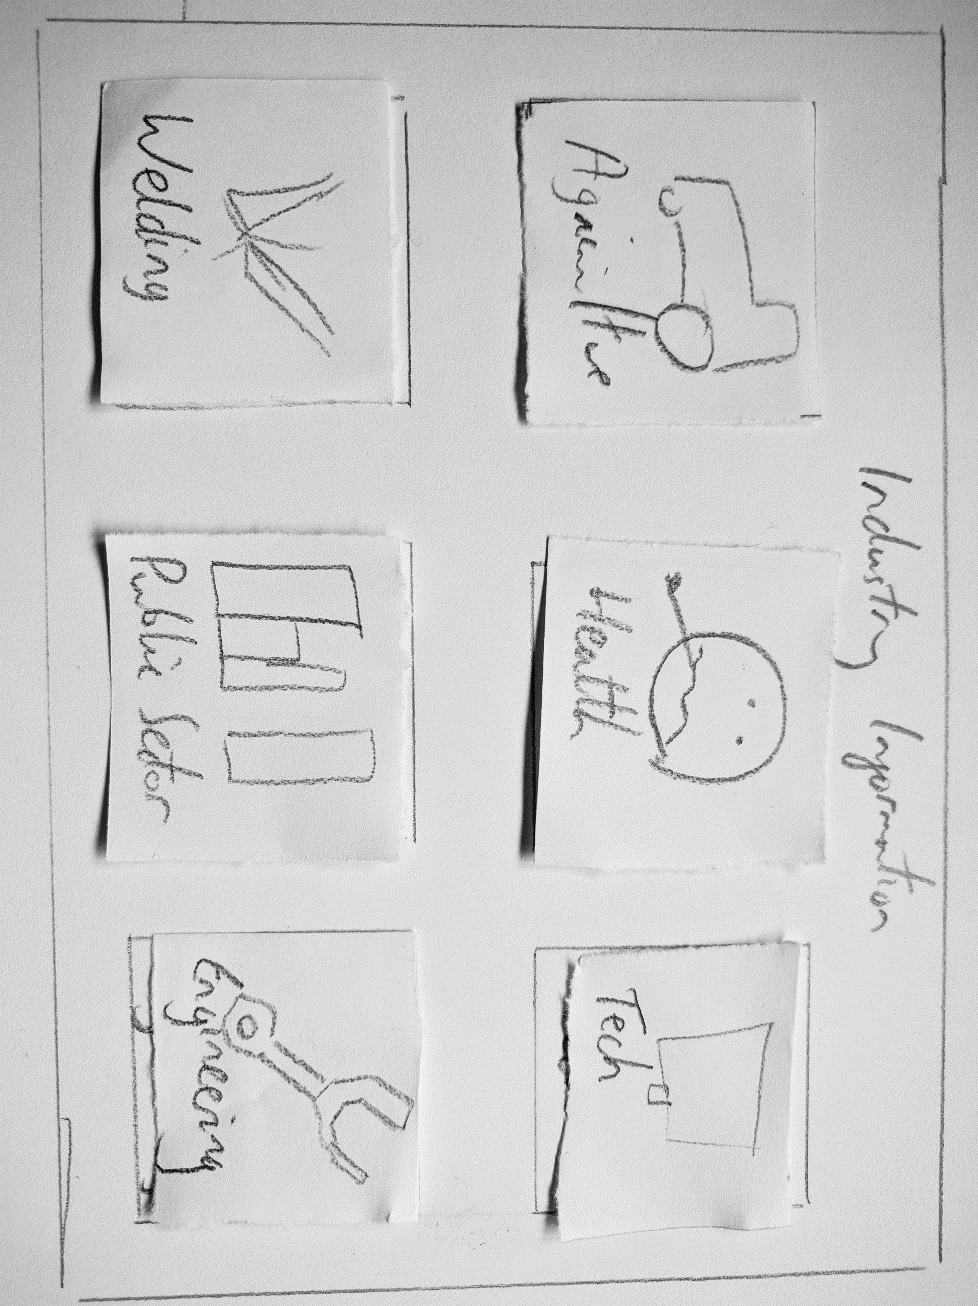 Industry Information
Health
Tech
Welding
Public Sector
Engineering